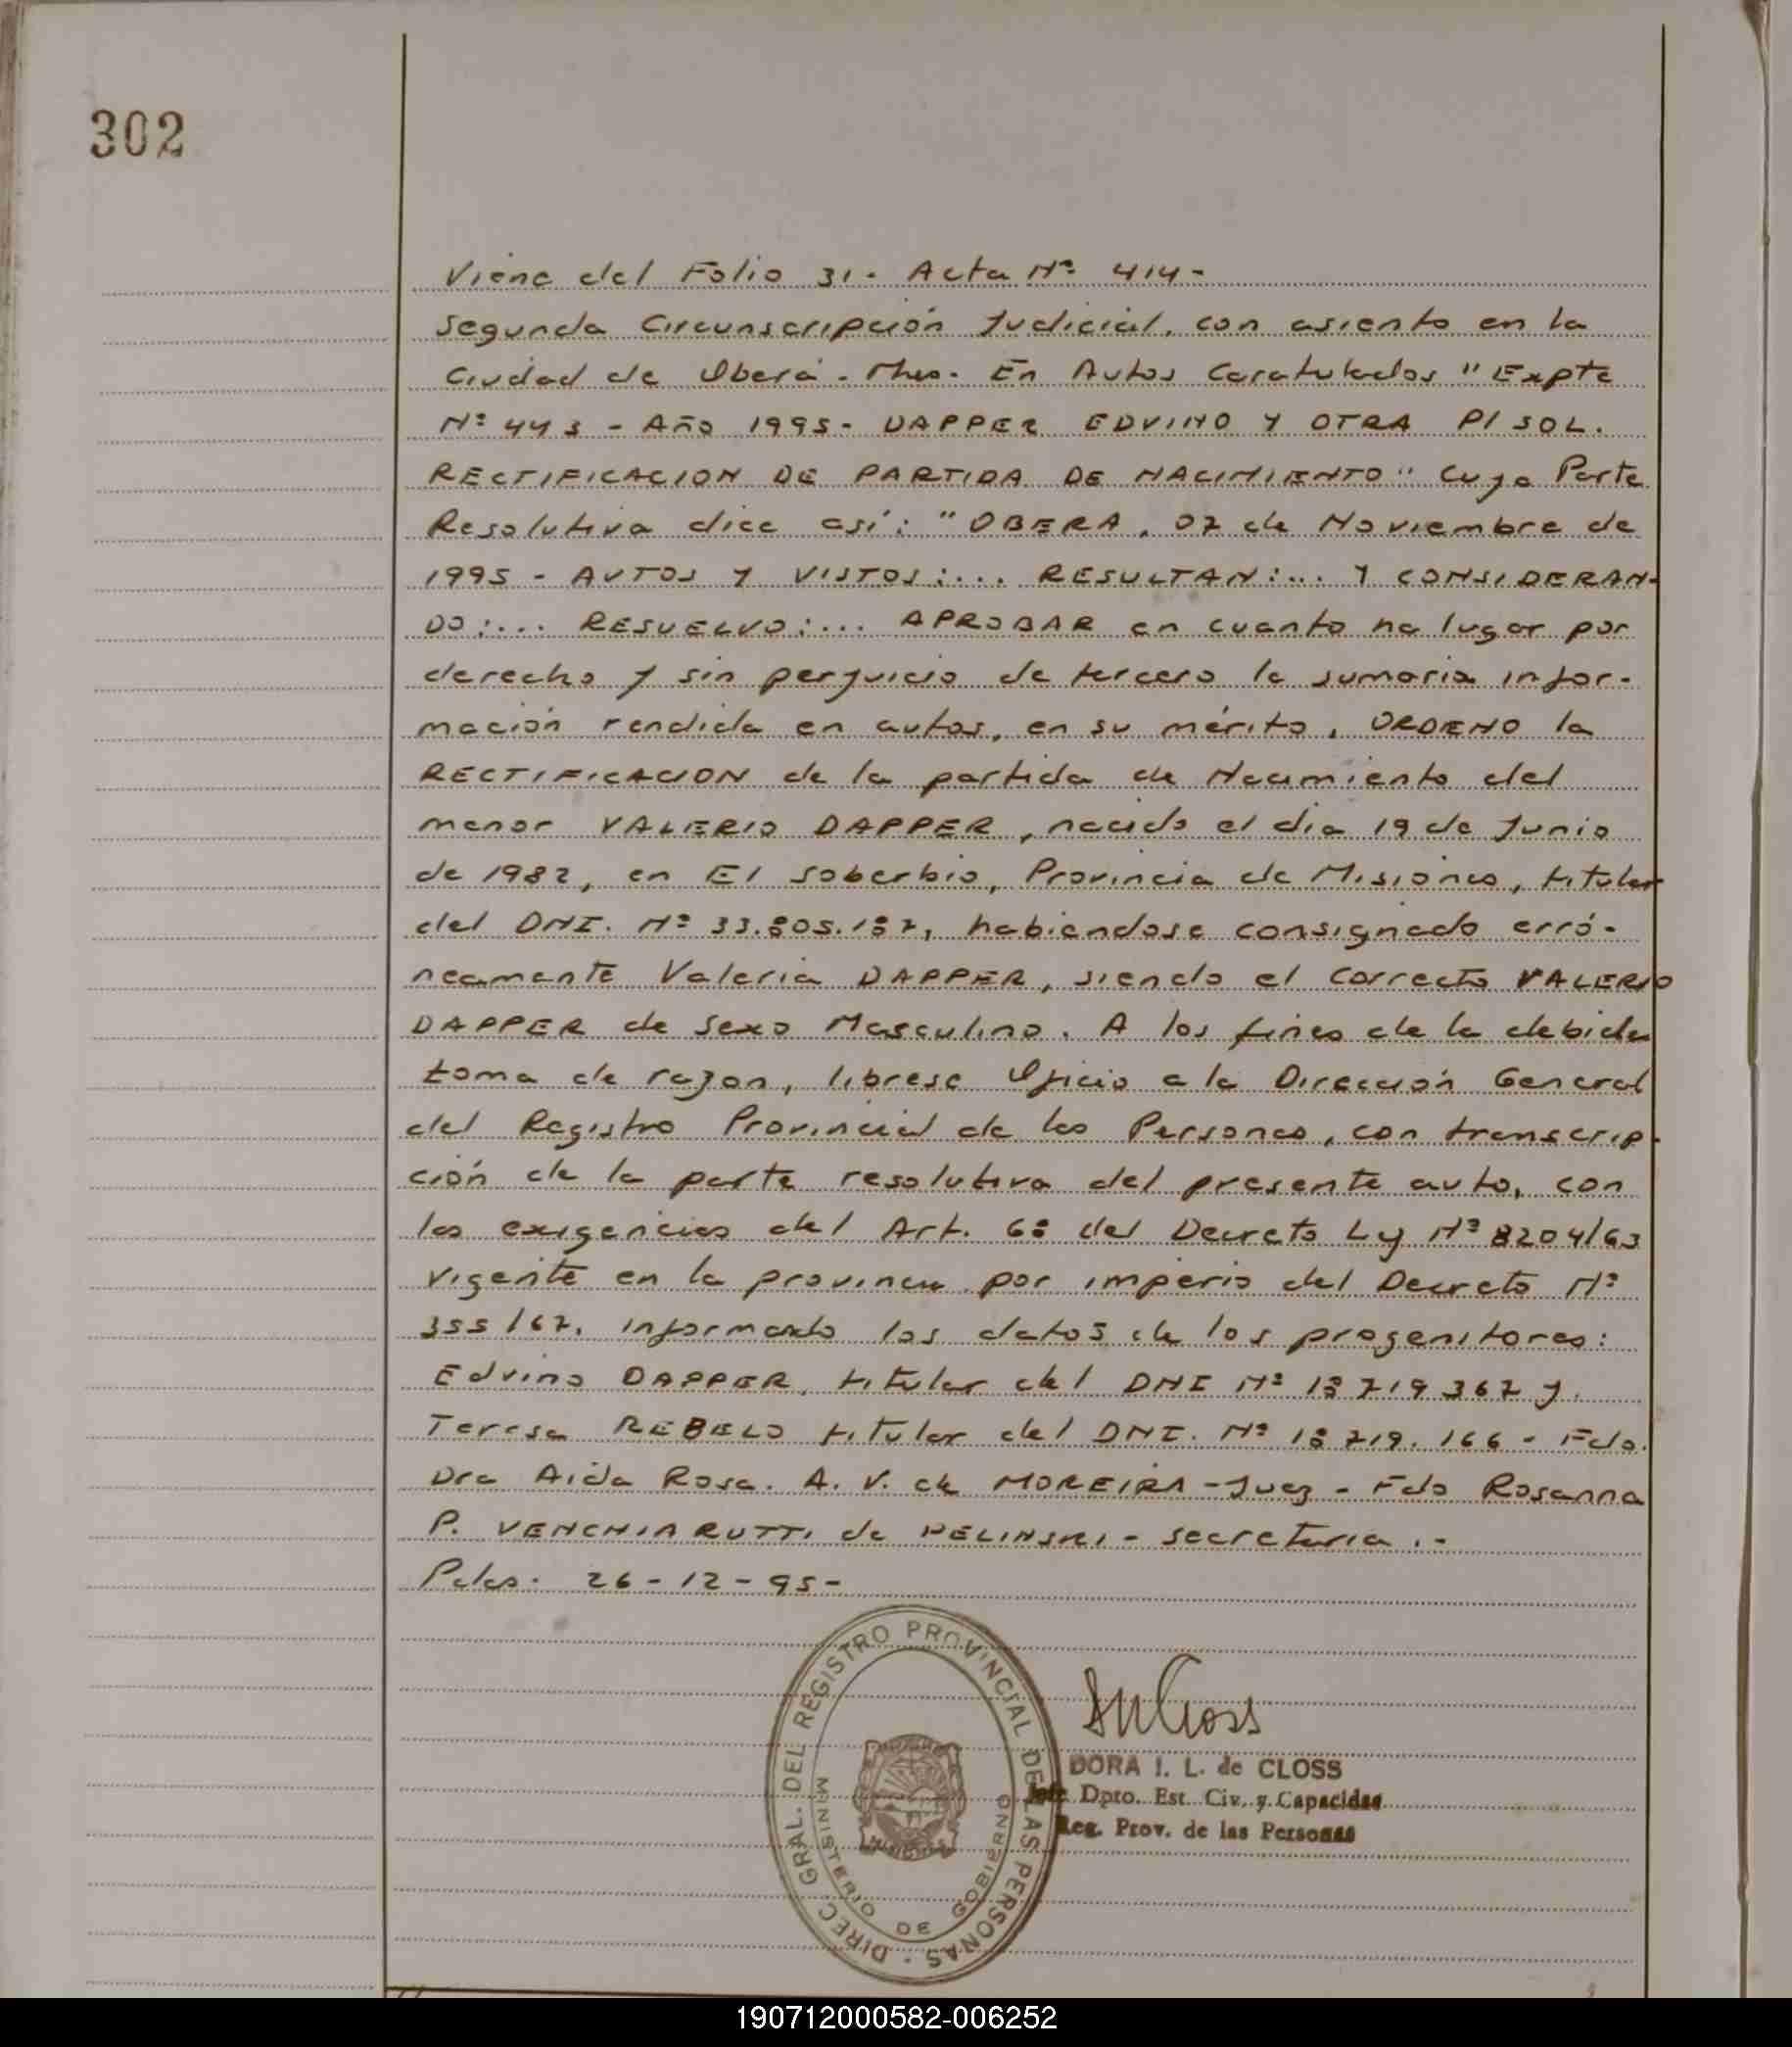 302
Viene del Folio 31. Acta Nº 414-
segunda Circunscripción Judicial, con asiento en la
Ciudad de Oberá. Mnes. En Autos Caratulados "Expte
Nº 443 - Año 1995- DAPPER EDVINO Y OTRA P/ SOL.
RECTIFICACION DE PARTIDA DE NACIMIENTO" Cuya Parte
Resolutiva dice así: "OBERA, 07 de Noviembre de
1995 - AUTOS Y VISTOS:... RESULTAN:... Y CONSIDERAN-
DO:... RESUELVO:... APROBAR en cuanto ha lugar por
derecho y sin perjuicio de tercero la sumaria infor-
mación rendida en autos, en su mérito, ORDENO la
RECTIFICACION de la partida de Nacimiento del
menor VALERIO DAPPER, nacido el dia 19 de Junio
de 1982, en El Soberbio, Provincia de Misiones, titular
del DNI. Nº 33.805.187, habiendose consignado erró-
neamente Valeria DAPPER, siendo el correcto VALERIO
DAPPER de sexo Masculino. A los fines de la debida
toma de razon, librese Oficio a la Dirección General
del Registro Provincial de las Personas, con transcrip-
ción de la parte resolutiva del presente auto, con
las exigencias del Art. 6º del Decreto Ley Nº 8204/63
vigente en la provincia por imperio del Decreto Nº
355/67, informando los datos de los progenitores:
Edvino DAPPER, titular del DNI Nº 18 719 367 y
Teresa REBELO titular del DNI. Nº 18 719. 166 - Fdo.
Dra Aida Rosa. A. V. de MOREIRA - Juez - Fdo Rosanna
P. VENCHIARUTTI de PELINSKI - secretaria.-
Pdas. 26-12-95-
DIREC. GRAL. DEL REGISTRO PROVINCIAL DE LAS PERSONAS
MINISTERIO DE GOBIERNO
MISIONES
DORA I. L. de CLOSS
Jefe Dpto. Est. Civ. y Capacidad
Reg. Prov. de las Personas
190712000582-006252